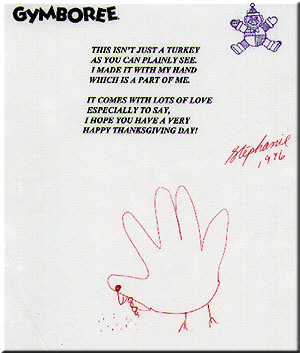 GYMBOREE
THIS ISN'T JUST A TURKEY
AS YOU CAN PLAINLY SEE.
I MADE IT WITH MY HAND
WHICH IS A PART OF ME.
IT COMES WITH LOTS OF LOVE
ESPECIALLY TO SAY,
I HOPE YOU HAVE A VERY
HAPPY THANKSGIVING DAY!
Stephanie
1996